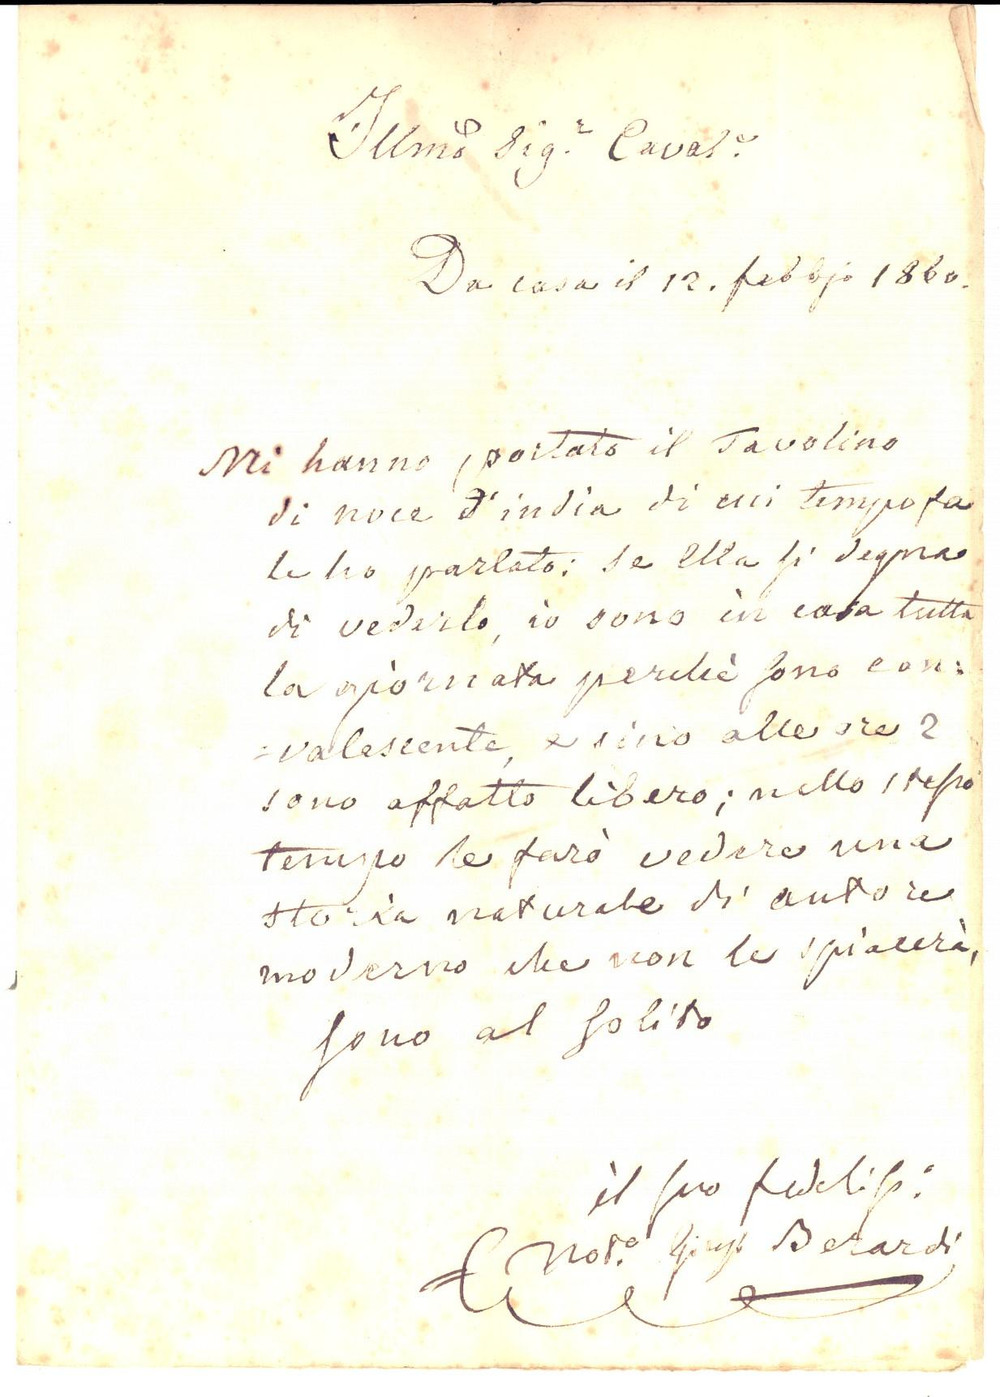 Illmo Sig.r Caval.e
Da casa il 12. febbjo 1860.
Mi hanno portato il Tavolino
di noce d'india di cui tempo fa
le ho parlato: se Ella si degna
di vederlo, io sono in casa tutta
la giornata perchè sono con:
=valescente, e sino alle ore 2
sono affatto libero; nello stesso
tempo le farò vedere una
storia naturale di autore
moderno che non le spiacerà,
sono al solito
il suo fedeliss.o
Not.o Berardi